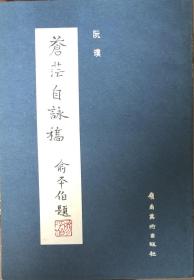 阮璞
蒼茫自詠稿
俞本伯題
嶺南美術出版社